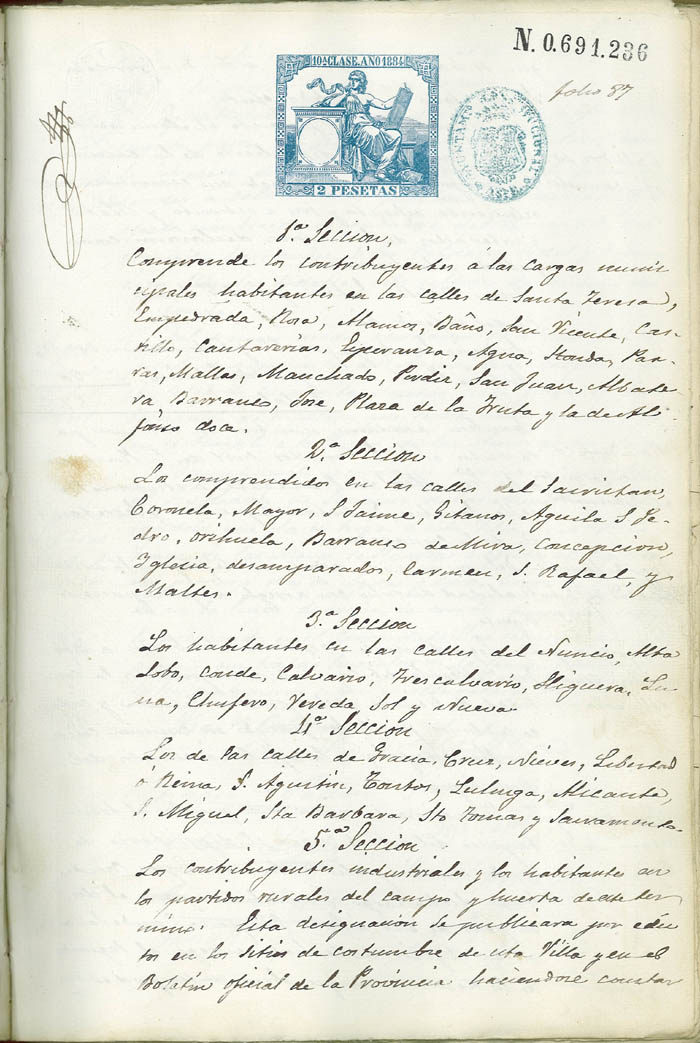 N. 0.691.236
10ª CLASE. AÑO 1884
folio 87
2 PESETAS
1.ª Seccion,
Comprende los contribuyentes á las cargas muni-
cipales habitantes en las calles de Santa Teresa,
Empedrada, Rosa, Alamos, Baño, San Vicente, Cas-
tillo, Cantarerias, Esperanza, Agua, Honda, Par-
ras, Mallas, Manchado, Perdiz, San Juan, Albate-
ra Barranco, José, Plaza de la Fruta y la de Al-
fonso doce.
2.ª Seccion
Los comprendidos en las calles del
Coronela, Mayor, S Jaime, Gitanos, Aguila S Pe-
dro, Orihuela, Barranco de Mira, Concepcion,
Yglesia, desamparados, Carmen, S. Rafael, y
Maltes.
3.ª Seccion
Los habitantes en las calles del Nuncio, Alta
Lobo, Conde, Calvario, Trescalvario, Higuera, Lu-
na, Chufero, Vereda, Sol y Nueva.
4.ª Seccion
Los de las calles de Gracia, Cruz, Nieves, Libertad
ó Reina, S. Agustin, Tontos, Alicante,
S. Miguel, Sta Barbara, Sto Tomas y
5.ª Seccion
Los contribuyentes industriales y los habitantes en
los partidos rurales del campo y huerta de este ter-
mino. Esta designacion se publicará por edic-
tos en los sitios de costumbre de esta Villa y en el
Boletin oficial de la Provincia haciendose constar